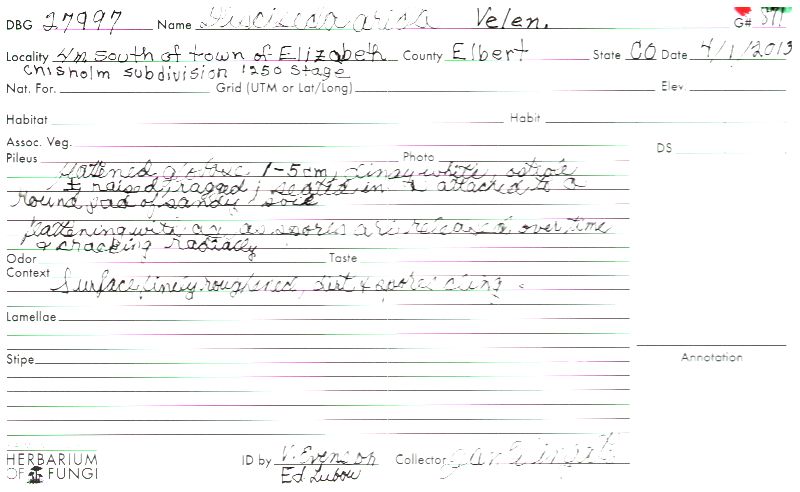 DBG 27997 Name Disciseda arida Velen. G# 871
Locality 4m South of town of Elizabeth County Elbert State CO Date 4/1/2013
Chisholm subdivision 1250 Stage
Nat. For. Grid (UTM or Lat/Long) Elev.
Habitat Habit
Assoc. Veg. DS
Pileus Photo
flattened globose 1-5cm, dingy white, ostiole
± raised, ragged; seated in & attached to a
round pad of sandy soil
flattening with age as spores are released over time
& cracking radially
Odor Taste
Context Surface finely roughened, dirt & spores cling.
Lamellae
Stipe
Annotation
HERBARIUM OF FUNGI
ID by V. Evenson Collector
Ed Lubow